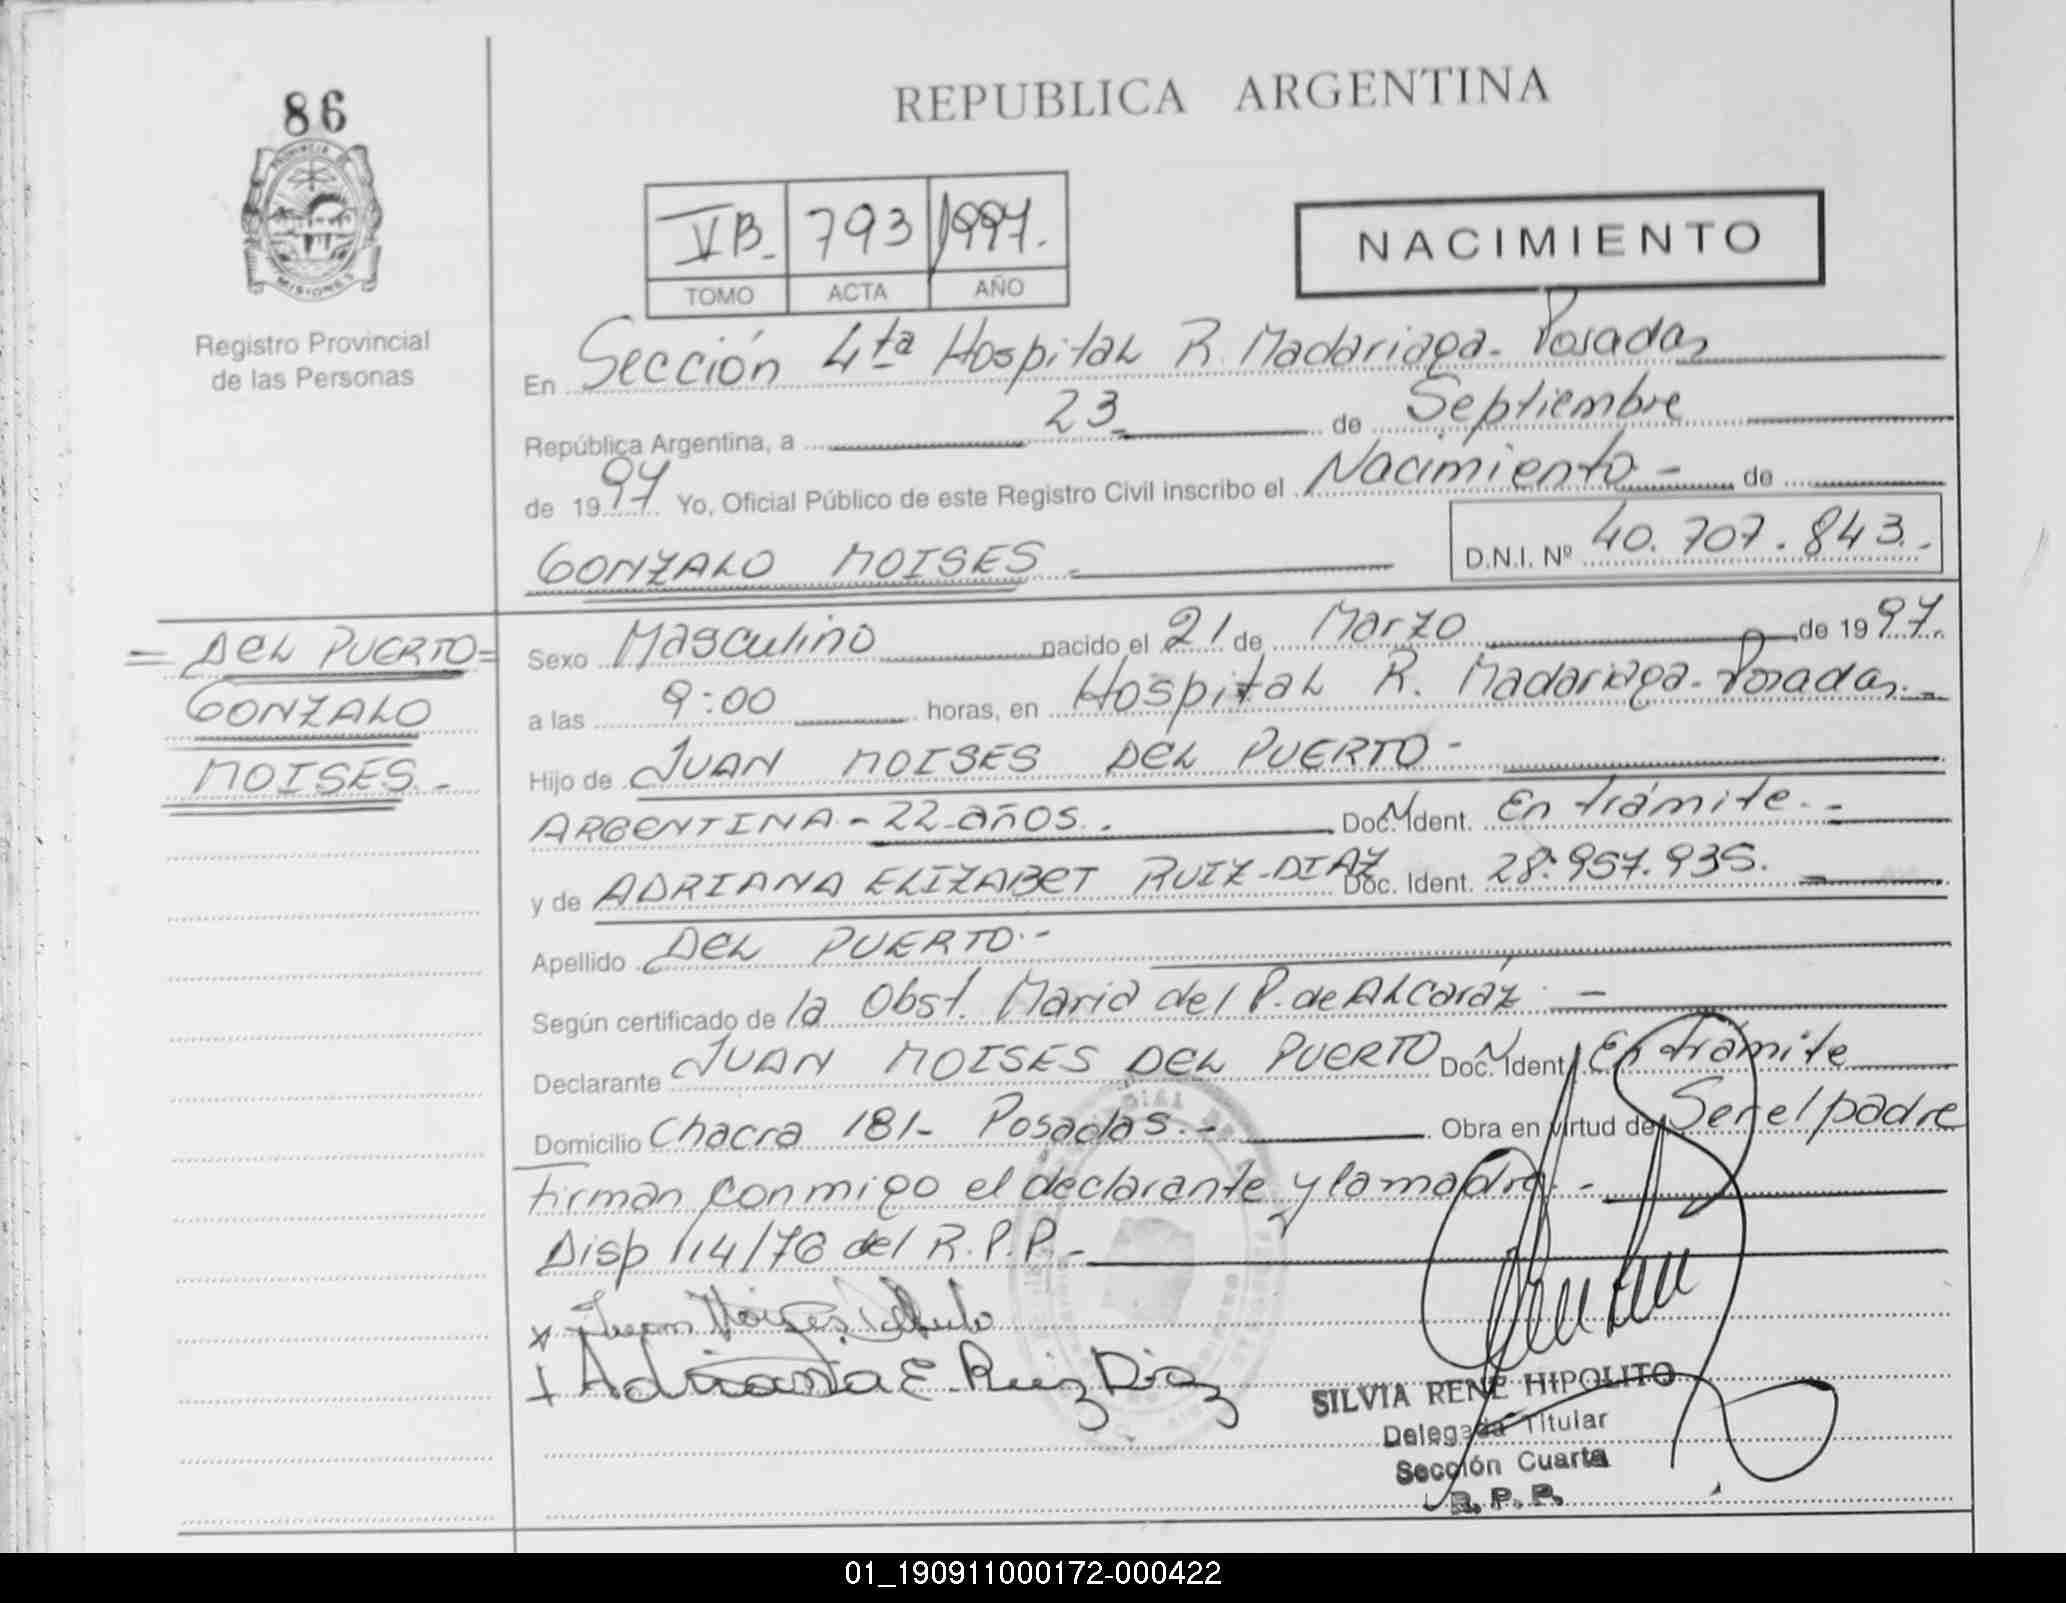 86
PROVINCIA DE
MISIONES
Registro Provincial
de las Personas
REPUBLICA ARGENTINA
V B.- 793 1997.
TOMO ACTA AÑO
NACIMIENTO
En Sección 4ta Hospital R. Madariaga- Posadas
República Argentina, a 23 de Septiembre
de 1997 Yo, Oficial Público de este Registro Civil inscribo el Nacimiento - de
GONZALO MOISES - D.N.I. Nº 40.707.843.-
= DEL PUERTO =
GONZALO
MOISES.-
Sexo Masculino nacido el 21 de Marzo de 1997.
a las 9:00 horas, en Hospital R. Madariaga- Posadas.-
Hijo de JUAN MOISES DEL PUERTO -
ARGENTINA - 22 años.- Doc. Ident. En trámite.-
y de ADRIANA ELIZABET RUIZ-DIAZ Doc. Ident. 28.957.935.
Apellido DEL PUERTO.-
Según certificado de la Obst. Maria del P. de Alcaráz.-
Declarante JUAN MOISES DEL PUERTO Doc. Ident. En trámite
Domicilio Chacra 181- Posadas.- Obra en virtud de Ser el padre
Firman conmigo el declarante y la madre.-
Disp 114/76 del R.P.P.-
x Juan Moises Del Puerto
+ Adriana E. Ruiz Diaz
SILVIA RENE HIPOLITO
Delegada Titular
Sección Cuarta
R. P. P.
01_190911000172-000422